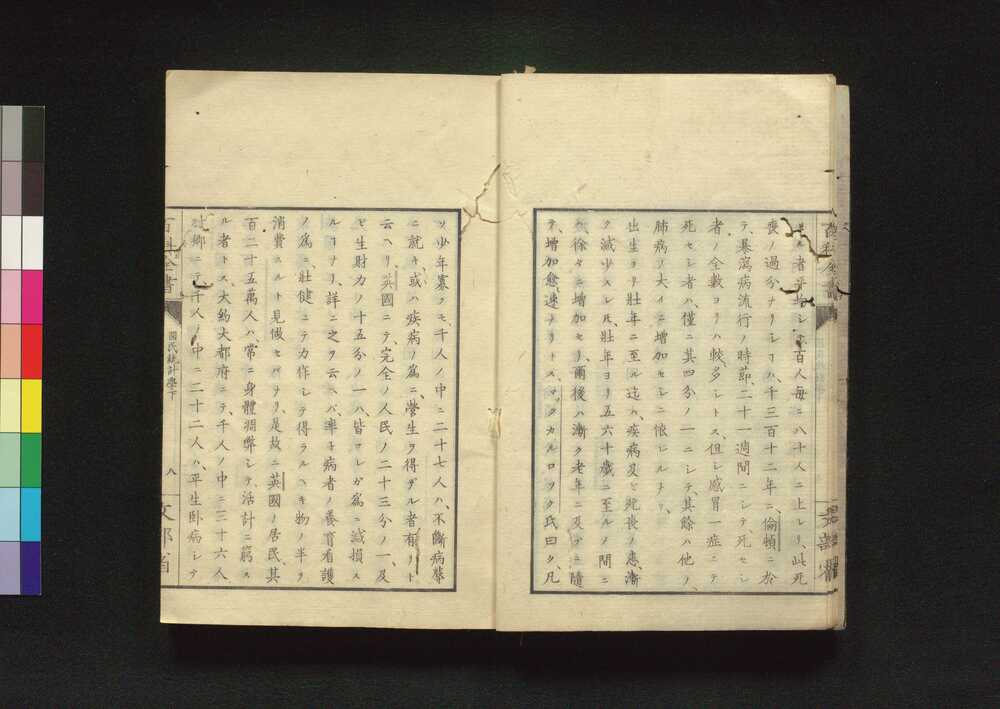 タル者平均シテ百人每ニ八十人ニ上レリ、此死
喪ノ過分ナリシコハ、千三百十二年ニ、倫頓ニ於
テ、暴瀉病流行ノ時節、二十一週間ニシテ死セシ
者ノ全數ヨリハ較多シトス、但レ感冒一症ニテ
死セシ者ハ、僅ニ其四分ノ一ニシテ、其餘ハ他ノ、
肺病ノ大イニ增加セシニ依レルナリ、
出生ヨリ壯年ニ至ル迄ハ、疾病及ヒ死喪ノ患、漸
ク減少スレ𪜈、壯年ヨリ五六十歲ニ至ルノ間ニ
ハ、徐々ニ增加セリ、爾後ハ漸ク老年ニ及ブニ隨
テ、增加愈速ナリトス、マッカルロック氏曰ク、凡
ソ少年寡クモ、千人ノ中ニ二十七人ハ、不斷病蓐
ニ就キ、或ハ疾病ノ爲ニ、營生ヲ得ザル者有リト
云ヘリ、英國ニテ、完全ノ人民ノ二十三分ノ一、及
ビ生財力ノ十五分ノ一ハ、皆コレガ爲ニ減損ス
ルコナリ、詳ニ之ヲ云ヘバ、率子病者ノ養育看護
ノ爲ニ、壯健ニテ力作シテ得ラルヘキ物ノ半ヲ
消費スルト見做セバナリ、是故ニ英國ノ居民、其
百二十五萬人ハ、常ニ身體凋弊シテ、活計ニ窮ス
ル者トス、大約大都府ニテ、千人ノ中ニ三十六人
村鄉ニテ千人ノ中ニ二十二人ハ、平生臥病シテ
百科全書
國民統計學下
八
文部省